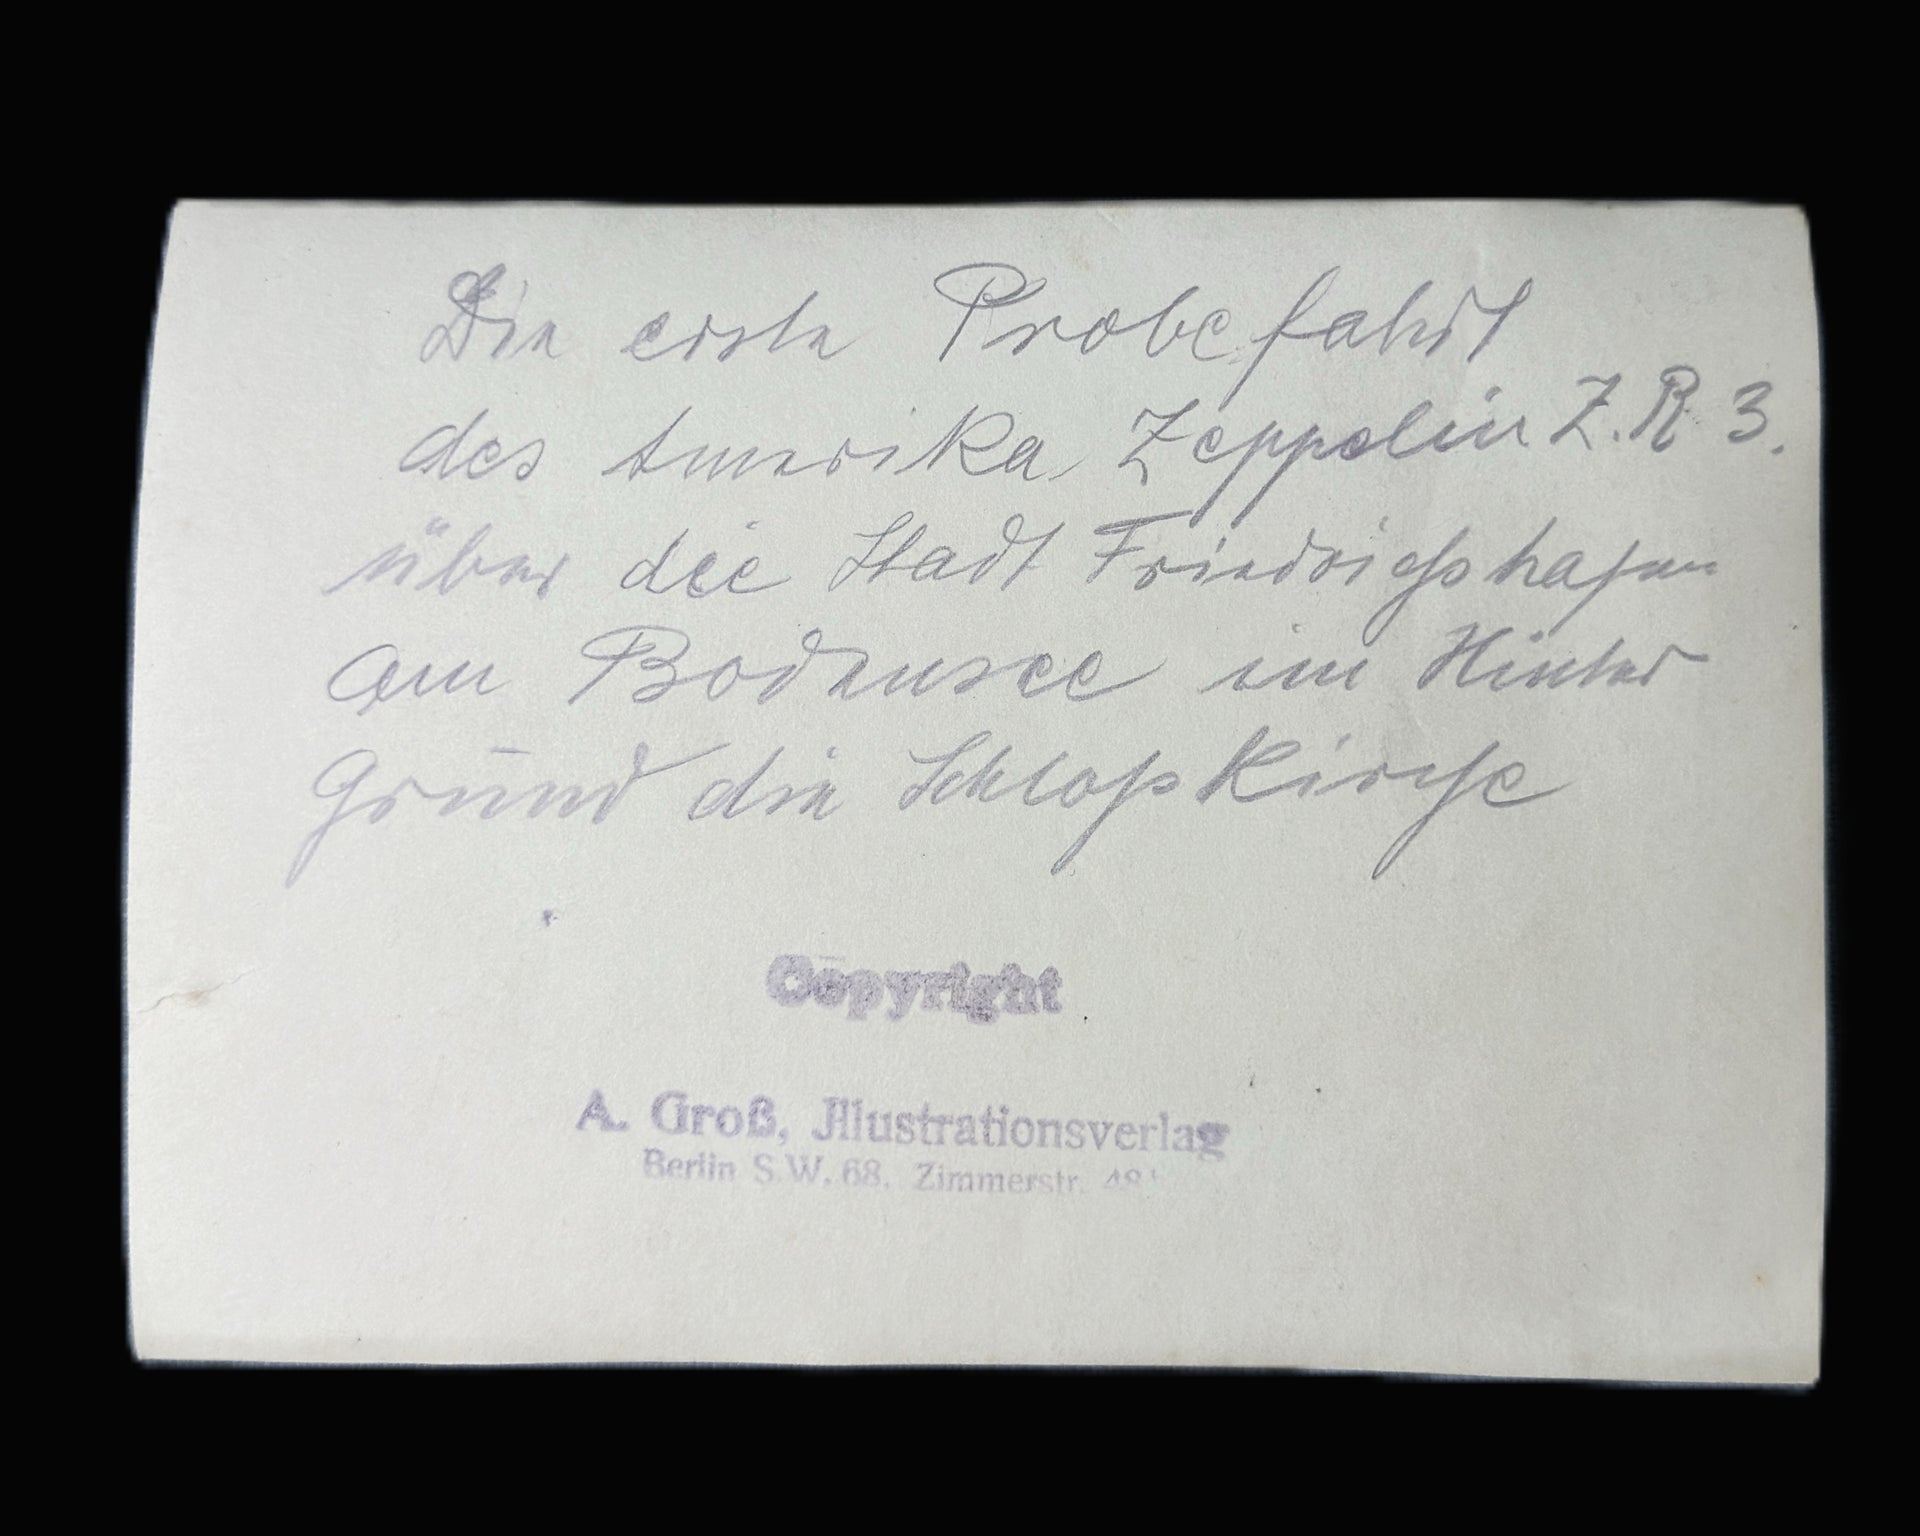 Die erste Probefahrt
des Amerika Zeppelin Z.R 3.
über die Stadt Friedrichshafen
am Bodensee im Hinter
Grund die Schloßkirche
Copyright
A. Groß, Illustrationsverlag
Berlin S.W. 68. Zimmerstr.